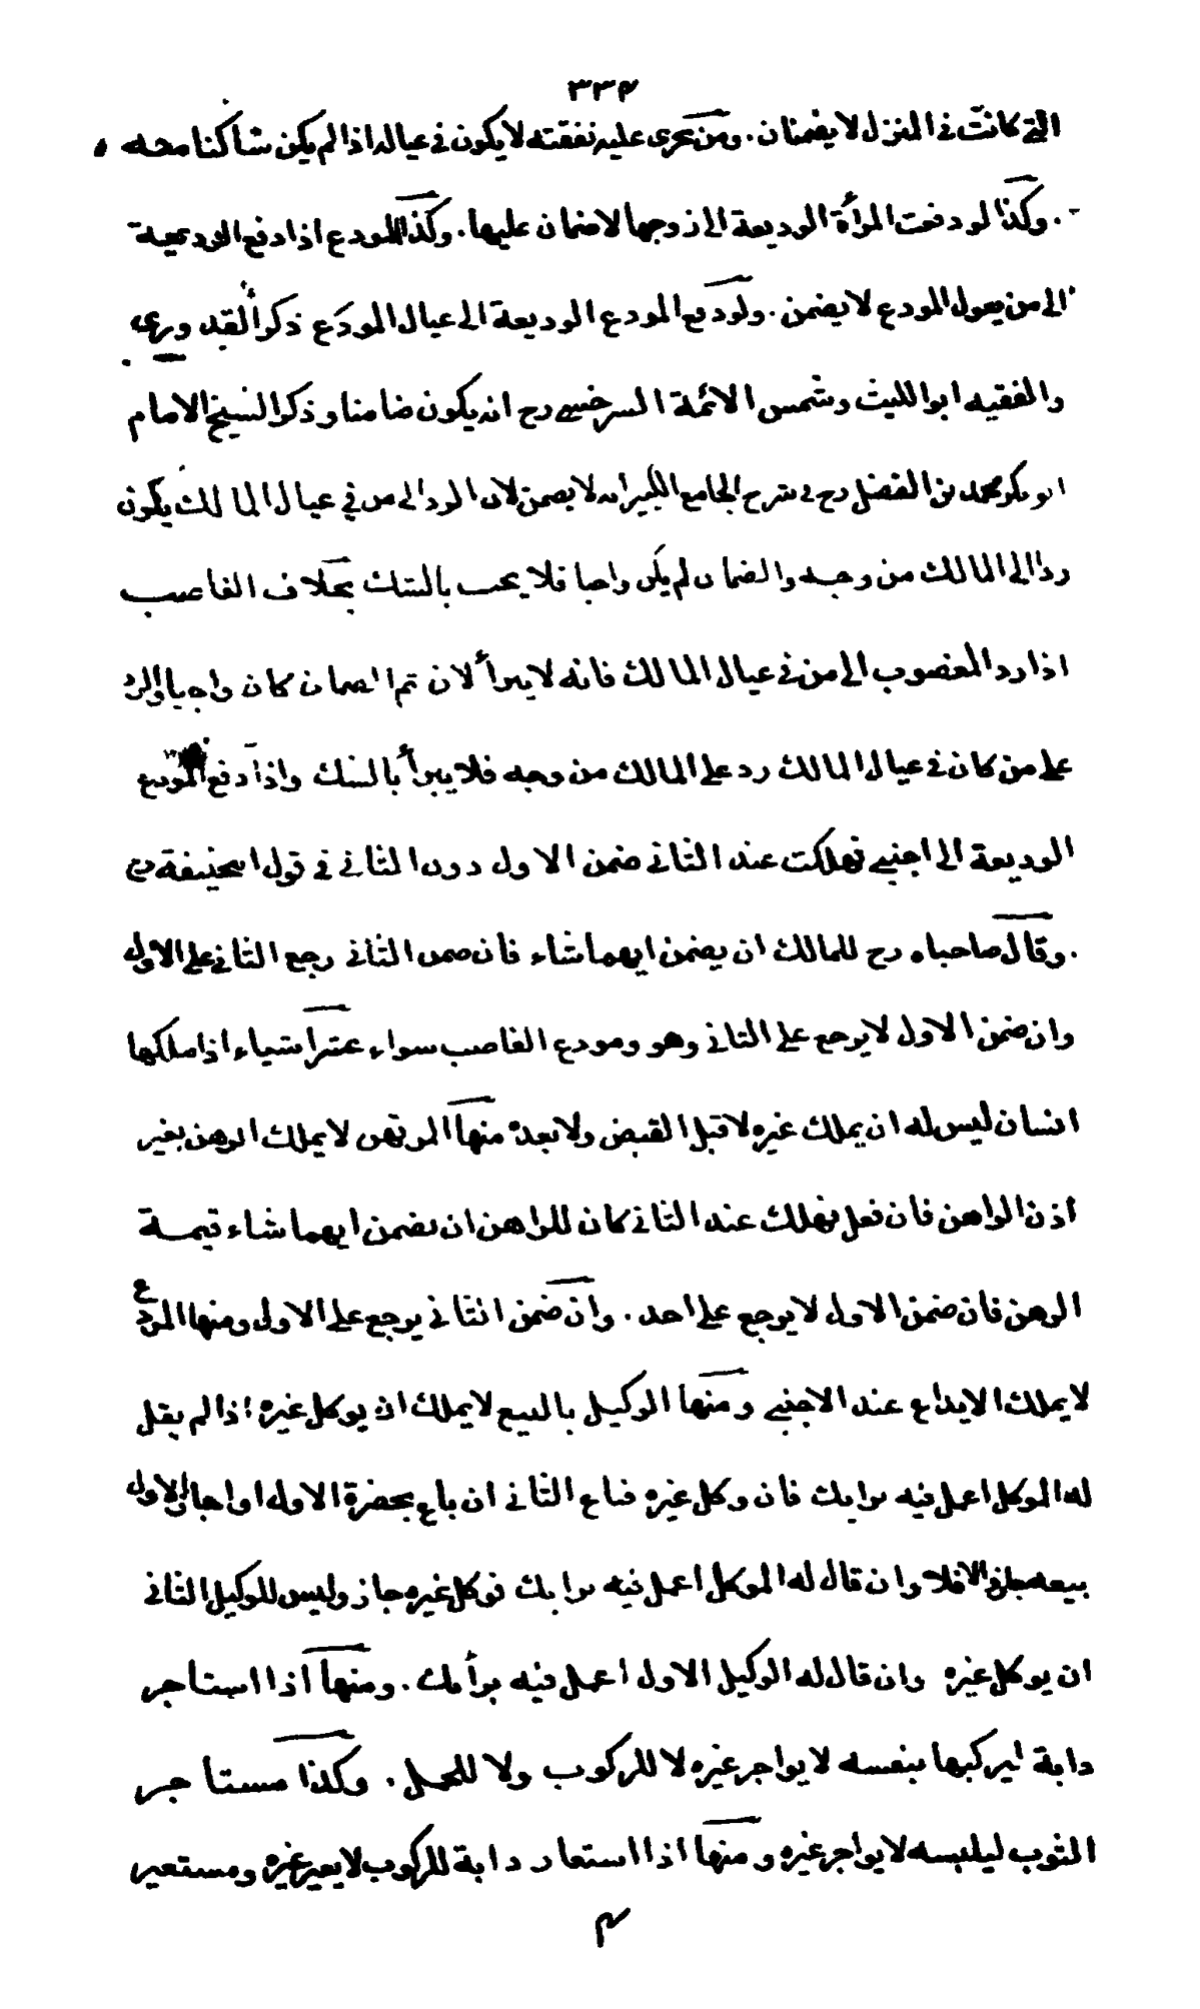 ٣٣٤
التى كانت فى المنزل لا يضمنان . ومن تجرى عليه نفقته لا يكون فى عياله اذا لم يكن ساكنا معه
. وكذا لو دفعت المرأة الوديعة الى زوجها لا ضمان عليها . وكذا المودع اذا دفع الوديعة
الى من يعول المودع لا يضمن . ولو دفع المودع الوديعة الى عيال المودَع ذكر القدورى
والفقيه ابو الليث وشمس الائمة السرخسى رح انه يكون ضامنا وذكر الشيخ الامام
ابو بكر محمد بن الفضل رح فى شرح الجامع الكبير انه لا يضمن لان الرد الى من فى عيال المالك يكون
ردا الى المالك من وجه والضمان لم يكن واجبا فلا يجب بالشك بخلاف الغاصب
اذا رد المغصوب الى من فى عيال المالك فانه لا يبرأ لان ثم الضمان كان واجبا والرد
على من كان فى عيال المالك رد على المالك من وجه فلا يبرأ بالشك واذا دفع المودع
الوديعة الى اجنبى فهلكت عند الثانى ضمن الاول دون الثانى فى قول ابى حنيفة رح
. وقال صاحباه رح للمالك ان يضمن ايهما شاء فان ضمن الثانى رجع الثانى على الاول
وان ضمن الاول لا يرجع على الثانى وهو ومودع الغاصب سواء عشر اشياء اذا ملكها
انسان ليس له ان يملك غيره لا قبل القبض ولا بعده منها المرتهن لا يملك الرهن بغير
اذن الراهن فان فعل فهلك عند الثانى كان للراهن ان يضمن ايهما شاء قيمة
الرهن فان ضمن الاول لا يرجع على احد . وان ضمن الثانى يرجع على الاول ومنها المودع
لا يملك الايداع عند الاجنبى ومنها الوكيل بالبيع لا يملك ان يوكل غيره اذا لم يقل
له الموكل اعمل فيه برايك فان وكل غيره فباع الثانى ان باع بحضرة الاول او اجاز الاول
بيعه جاز والا فلا وان قال له الموكل اعمل فيه برايك فوكل غيره جاز وليس للوكيل الثانى
ان يوكل غيره وان قال له الوكيل الاول اعمل فيه برأيك . ومنها اذا استاجر
دابة ليركبها بنفسه لا يواجر غيره لا للركوب ولا للحمل . وكذا مستاجر
الثوب ليلبسه لا يواجر غيره ومنها اذا استعار دابة للركوب لا يعير غيره ومستعير